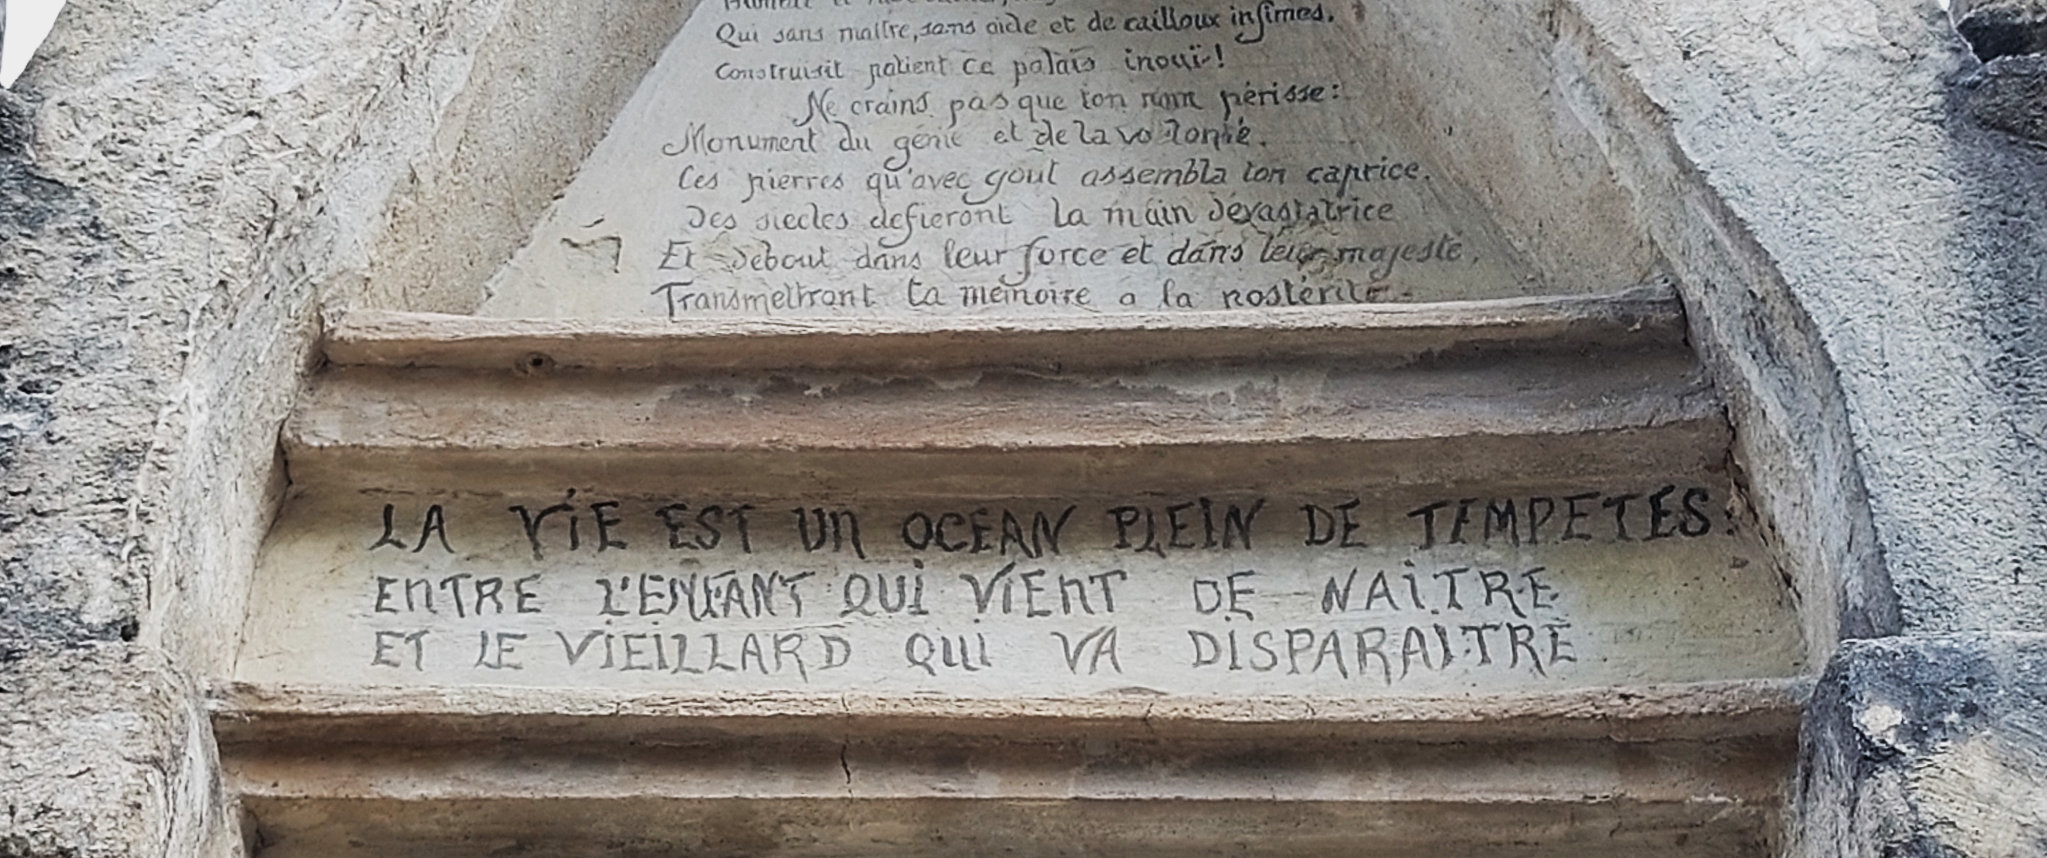 Qui sans maître, sans aide et de cailloux infimes.
Construisit patient ce palais inouï!
Ne crains pas que ton nom périsse:
Monument du génie et de la volonté.
Ces pierres qu'avec goût assembla ton caprice.
Des siecles defieront la main dévastatrice
Et debout dans leur force et dans leur majesté,
Transmettront ta mémoire a la postérité.
LA ViE EST UN OCEAN PLEIN DE TEMPETES:
ENTRE L'ENFANT QUi ViENT DE NAiTRE
ET LE ViEiLLARD QUi VA DiSPARAiTRE